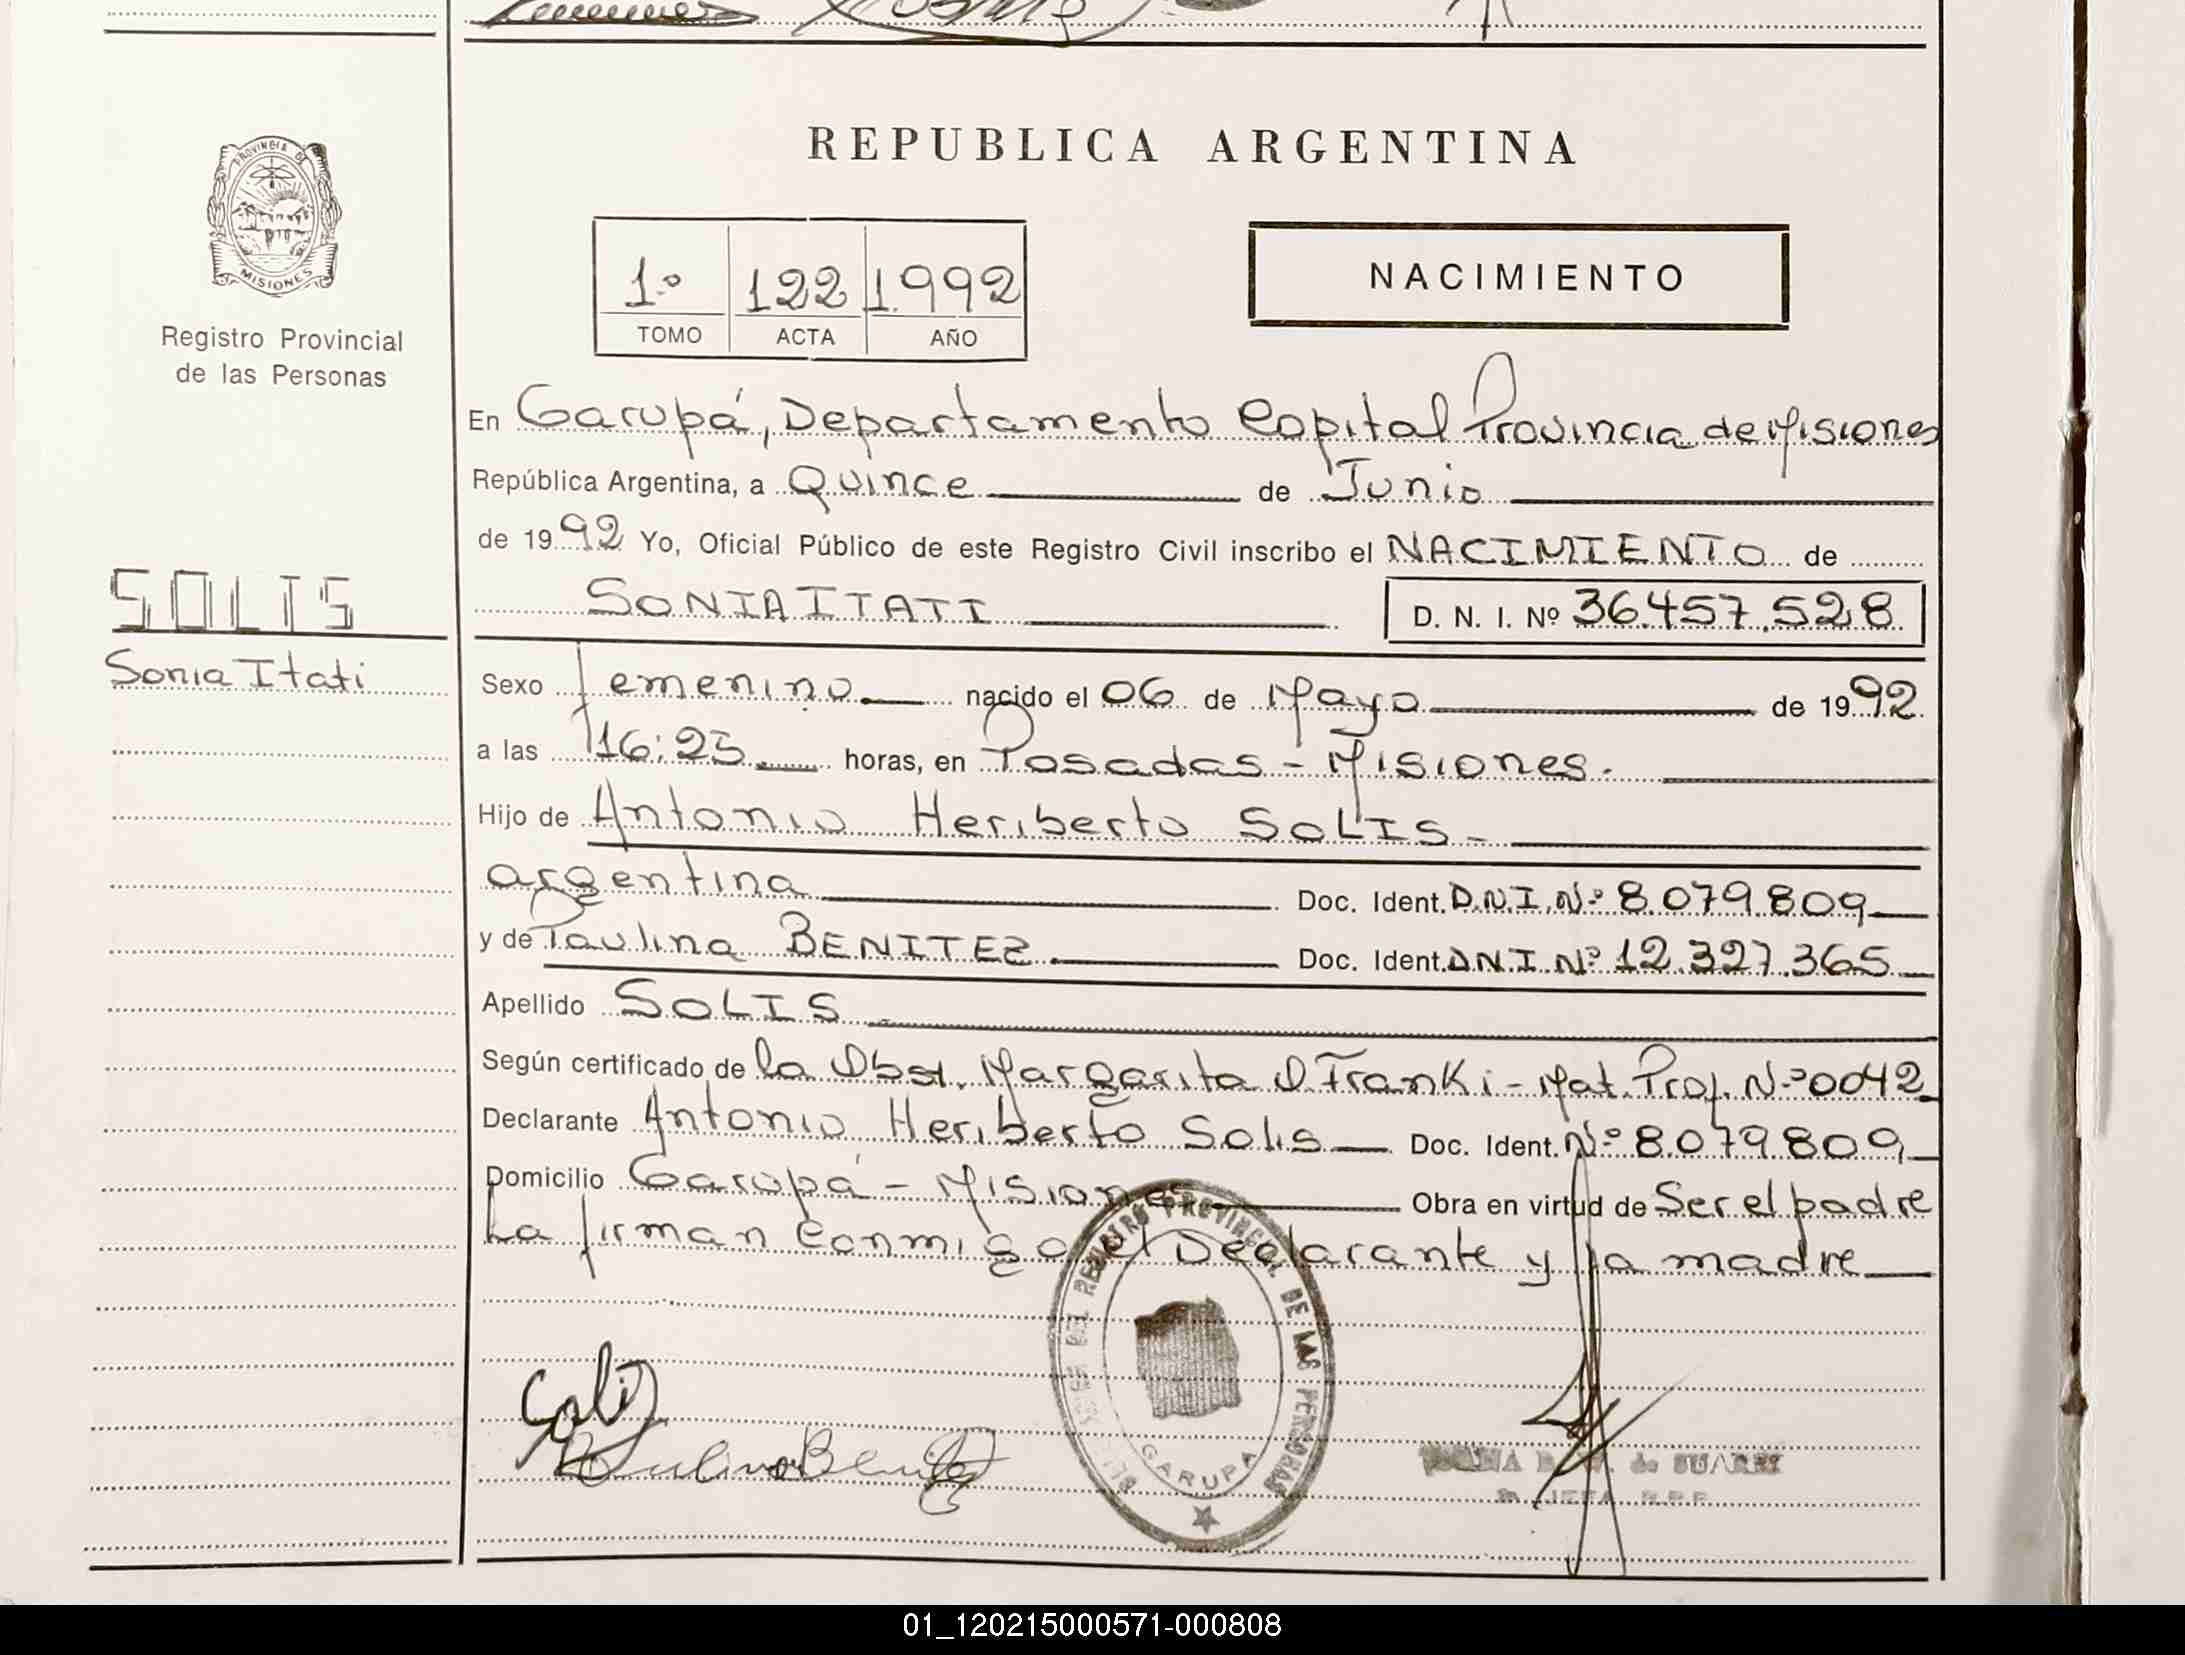 PROVINCIA DE
MISIONES
Registro Provincial
de las Personas
SOLIS
Sonia Itati
REPUBLICA ARGENTINA
1º 122 1.992
TOMO ACTA AÑO
NACIMIENTO
En Garupá, Departamento Capital Provincia de Misiones
República Argentina, a Quince de Junio
de 1992 Yo, Oficial Público de este Registro Civil inscribo el NACIMIENTO de
SONIA ITATI D. N. I. Nº 36.457.528
Sexo Femenino nacido el 06 de Mayo de 1992
a las 16:25 horas, en Posadas - Misiones.
Hijo de Antonio Heriberto SOLIS -
argentina Doc. Ident. D.N.I. Nº 8.079.809
y de Paulina BENITEZ Doc. Ident. D.N.I. Nº 12.327.365
Apellido SOLIS
Según certificado de la Obst. Margarita D Franki - Mat. Prof. Nº 0042
Declarante Antonio Heriberto Solis Doc. Ident. Nº 8.079.809
Domicilio Garupá - Misiones Obra en virtud de Ser el padre
La firman conmigo el Declarante y la madre
DEL REGISTRO PROVINCIAL DE LAS PERSONAS
GARUPA
Solis
Paulina Benitez
de SUAREZ
JEFA R.P.P.
01_120215000571-000808